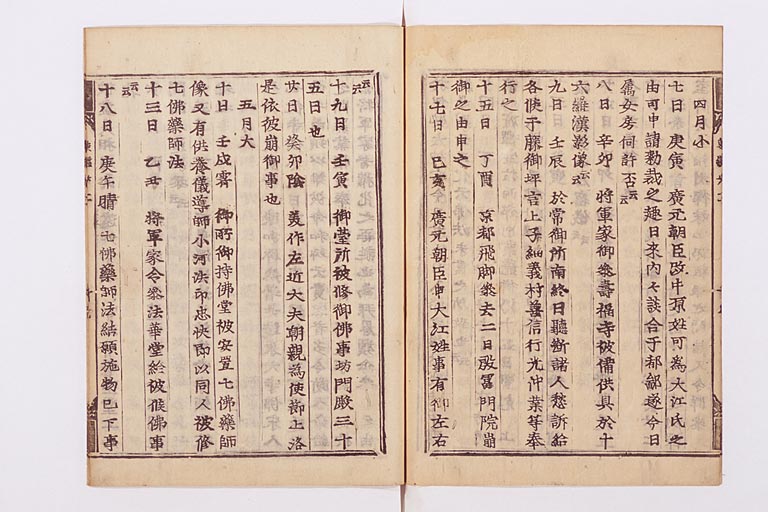 四月小
七日 庚寅 廣元朝臣改中原姓可為大江氏之
由可申請勅裁之趣日來内々談合于都鄙遂今日
属女房伺許否云云
八日 辛卯 將軍家御參壽福寺被備供具於十
六羅漢影像云云
九日 壬辰 於常御所南終日聽断諸人愁訴給
各使于藤御坪言上子細義村善信行光仲業等奉
行之
十五日 丁酉 京都飛脚參去二日殷冨門院崩
御之由申之
十七日 己亥 廣元朝臣申大江姓事有御左右
云云
十九日 壬寅 御堂所被修御佛事坊門殿三十
五日也
廿日 癸卯陰 美作左近大夫朝親為使節上洛
是依彼崩御事也
五月大
十日 壬戌霽 御所御持佛堂被安置七佛藥師
像又有供養儀導師小河法印忠快即以同人被修
七佛藥師法
十三日 乙丑 將軍家令參法華堂給被候佛事
云云
十八日 庚午晴 七佛藥師法結願施物已下事